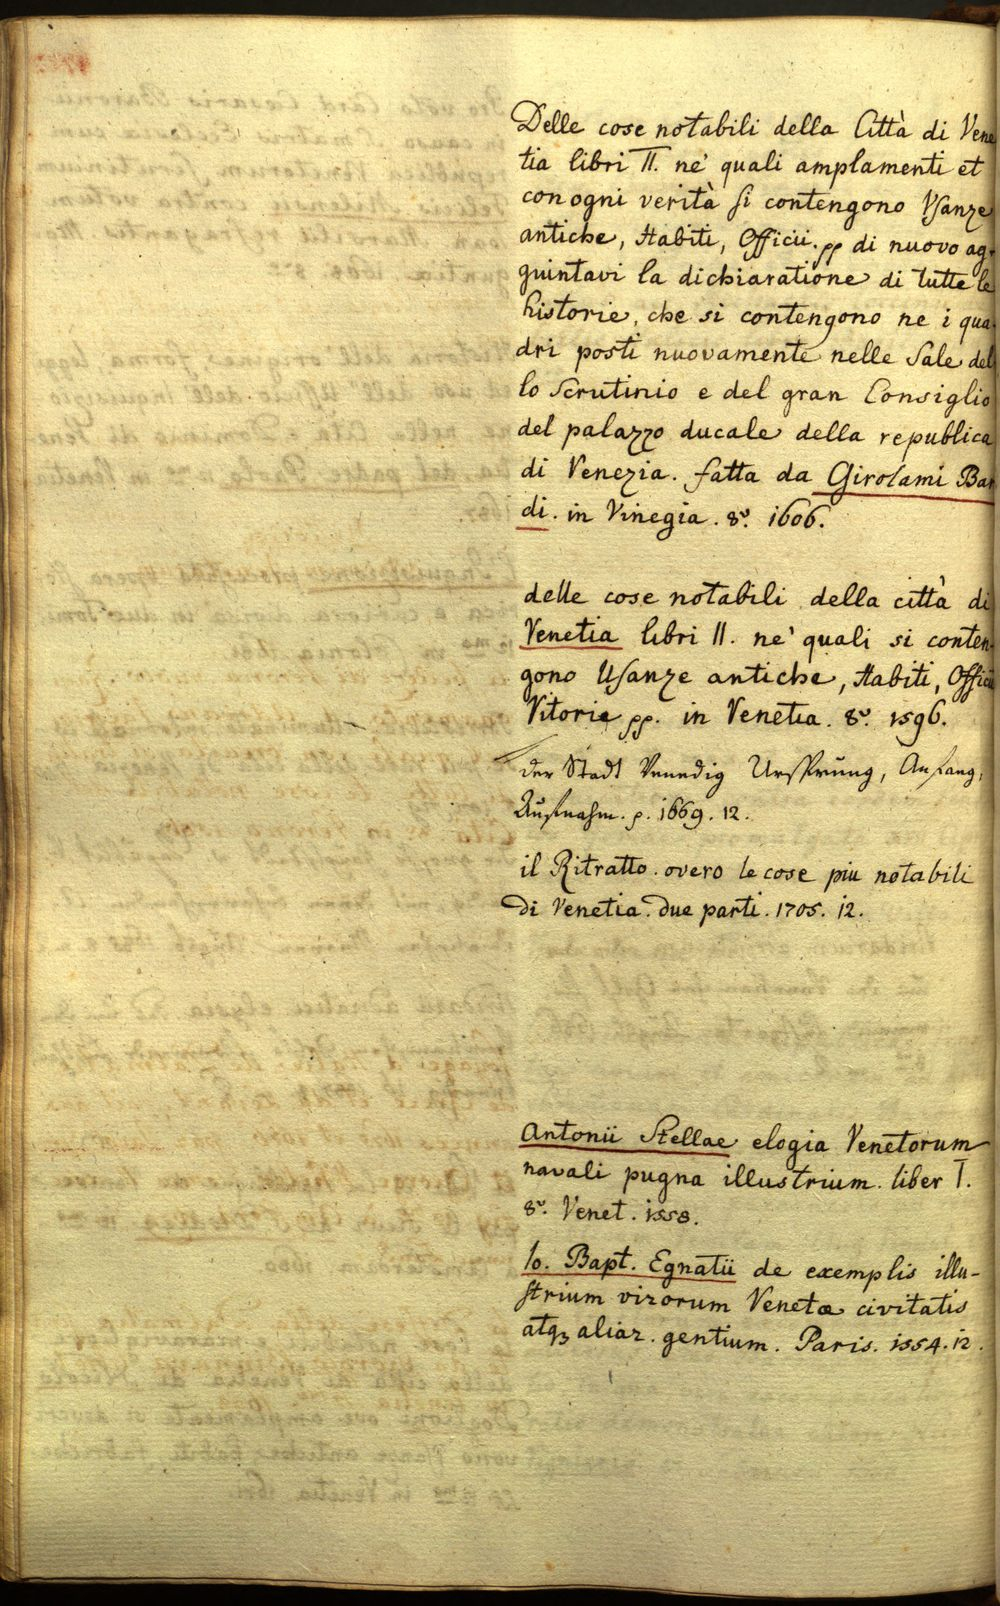 Delle cose notabili della Città di Vene
tia libri II. ne' quali amplamenti et
con ogni verità si contengono Vsanze
antiche, Habiti, Officii. pp di nuovo ag-
guintavi la dichiaratione di tutte le
historie, che si contengono ne i qua-
dri posti nuovamente nelle Sale del
lo Scrutinio e del gran Consiglio
del palazzo ducale della republica
di Venezia. fatta da Girolami Bar
di. in Vinegia. 8v. 1606.
delle cose notabili della città di
Venetia libri II. ne' quali si conten-
gono Usanze antiche, Habiti, Officii
Vitorie pp. in Venetia. 8v. 1596.
der Stadt Venedig Ursprung, Anfang,
Aufnahm. p. 1669. 12.
il Ritratto overo le cose piu notabili
di Venetia. due parti. 1705. 12.
Antonii Stellae elogia Venetorum
navali pugna illustrium. liber I.
8v. Venet. 1558.
Io. Bapt. Egnatii de exemplis illu-
strium virorum Venetæ civitatis
atqꝫ aliar. gentium. Paris. 1554. 12.